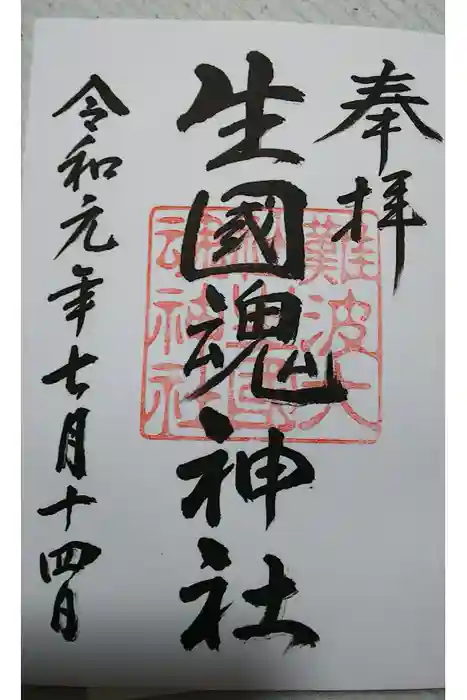 奉拝
生國魂神社
令和元年七月十四日
難波大
魂神社